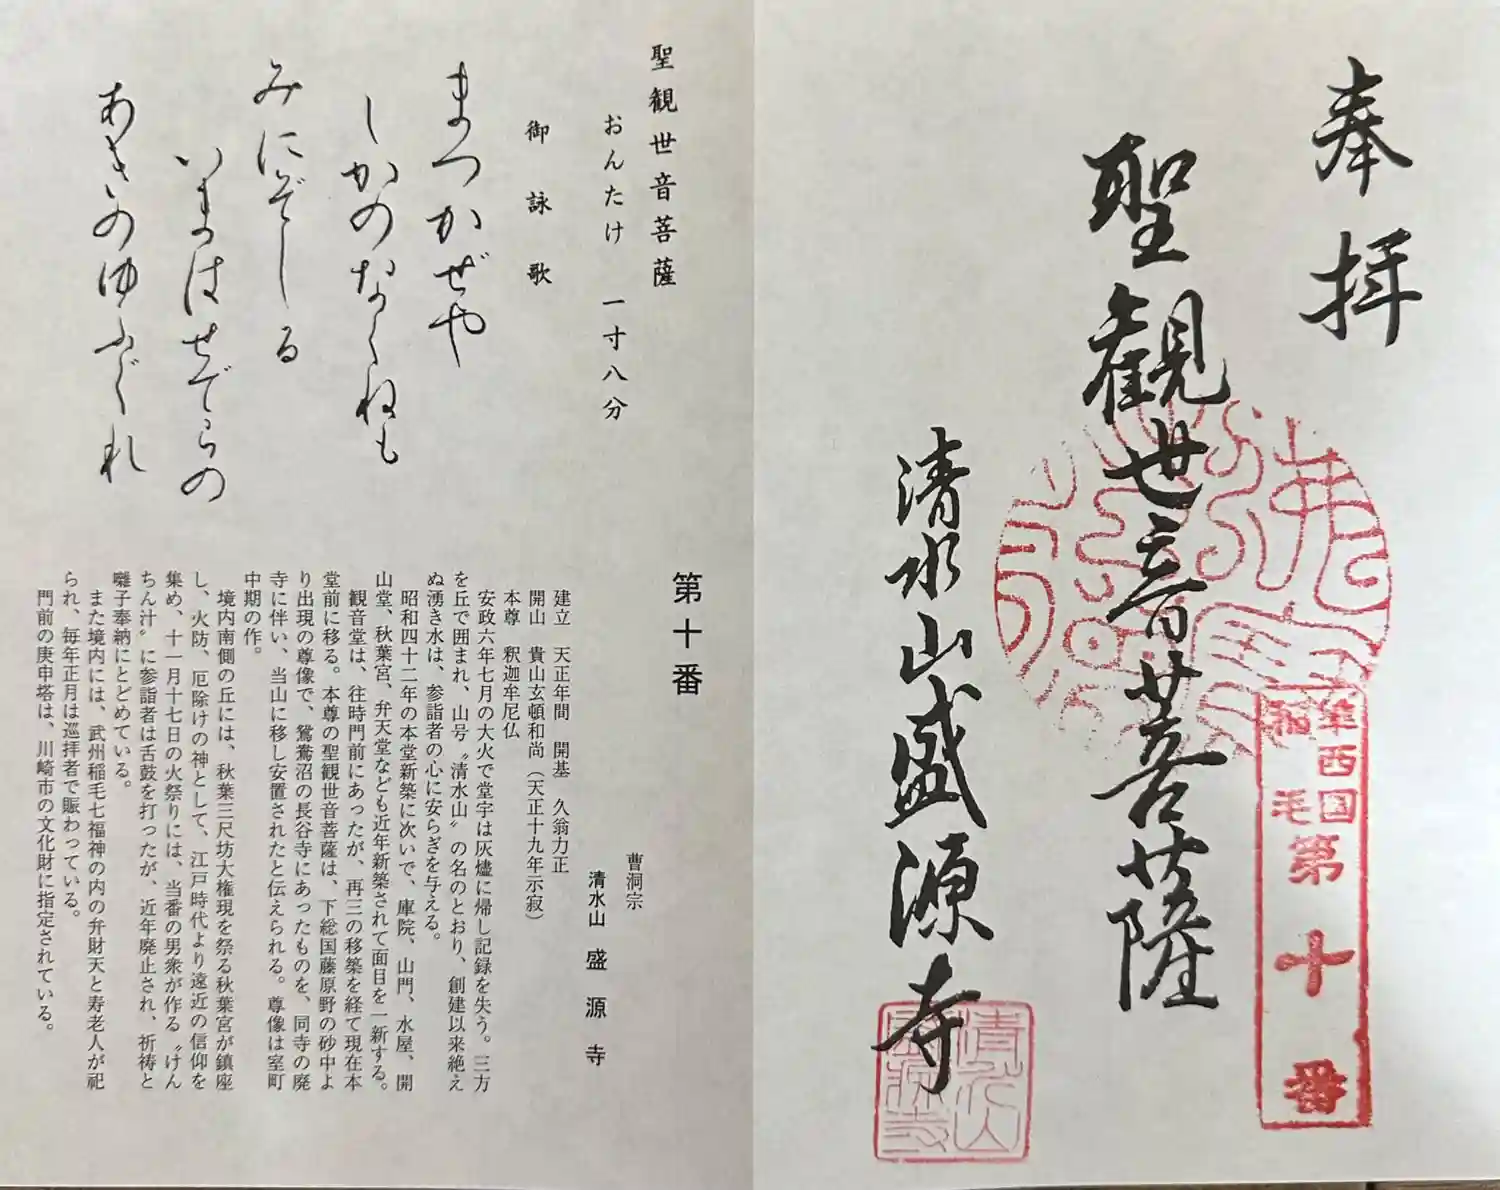 奉拝
聖観世音菩薩
清水山盛源寺
準西国
稲毛
第十番
清水山
盛源寺
聖観世音菩薩
おんたけ 一寸八分
御詠歌
まつかぜや
しかのなくねも
みにぞしる
いまはせでらの
あきのゆふぐれ
第十番
曹洞宗
清水山 盛源寺
建立 天正年間 開基 久翁力正
開山 貴山玄頓和尚（天正十九年示寂）
本尊 釈迦牟尼仏
安政六年七月の大火で堂宇は灰燼に帰し記録を失う。三方
を丘で囲まれ、山号〝清水山〟の名のとおり、創建以来絶え
ぬ湧き水は、参詣者の心に安らぎを与える。
昭和四十二年の本堂新築に次いで、庫院、山門、水屋、開
山堂、秋葉宮、弁天堂なども近年新築されて面目を一新する。
観音堂は、往時門前にあったが、再三の移築を経て現在本
堂前に移る。本尊の聖観世音菩薩は、下総国藤原野の砂中よ
り出現の尊像で、鴛鴦沼の長谷寺にあったものを、同寺の廃
寺に伴い、当山に移し安置されたと伝えられる。尊像は室町
中期の作。
境内南側の丘には、秋葉三尺坊大権現を祭る秋葉宮が鎮座
し、火防、厄除けの神として、江戸時代より遠近の信仰を
集め、十一月十七日の火祭りには、当番の男衆が作る〝けん
ちん汁〟に参詣者は舌鼓を打ったが、近年廃止され、祈祷と
囃子奉納にとどめている。
また境内には、武州稲毛七福神の内の弁財天と寿老人が祀
られ、毎年正月は巡拝者で賑わっている。
門前の庚申塔は、川崎市の文化財に指定されている。